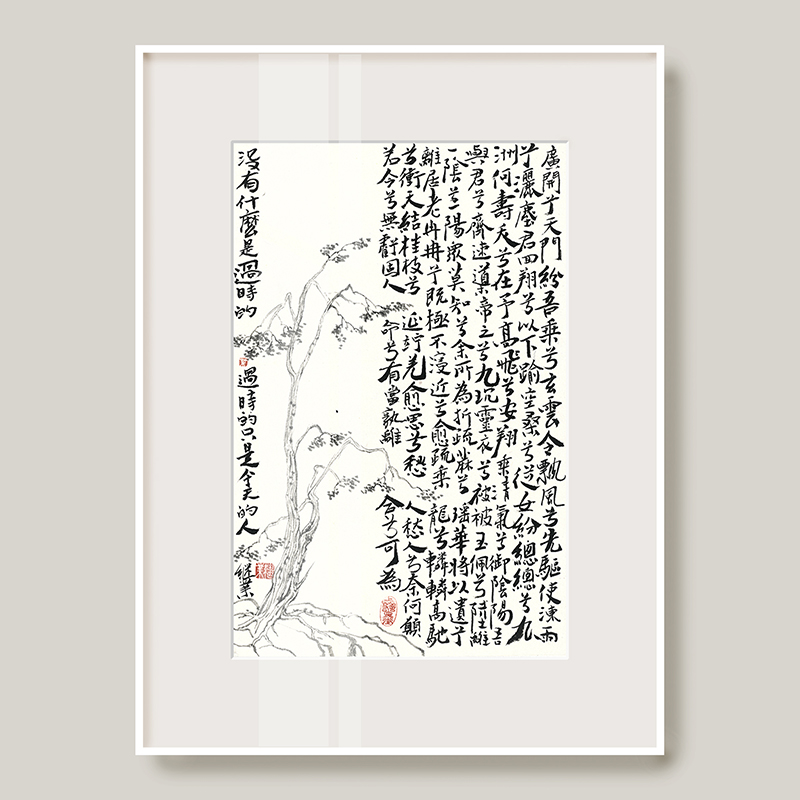 廣開兮天門紛吾乘兮玄雲令飄風兮先驅使涷雨
兮灑塵君回翔兮以下踰空桑兮從女紛總總兮九
洲何壽夭兮在予高飛兮安翔乘清氣兮御陰陽吾
與君兮齋速導帝之兮九坑靈衣兮被被玉佩兮陸離
一陰兮陽眾莫知兮余所為折疏麻兮瑤華將以遺兮
離居老冉冉兮既極不寖近兮愈疏乘龍兮轔轔高馳
兮衝天結桂枝兮延竚羌愈思兮愁人愁人兮奈何願
若今兮無虧固人命兮有當孰離合兮可為
沒有什麼是過時的 過時的只是今天的人 繼業